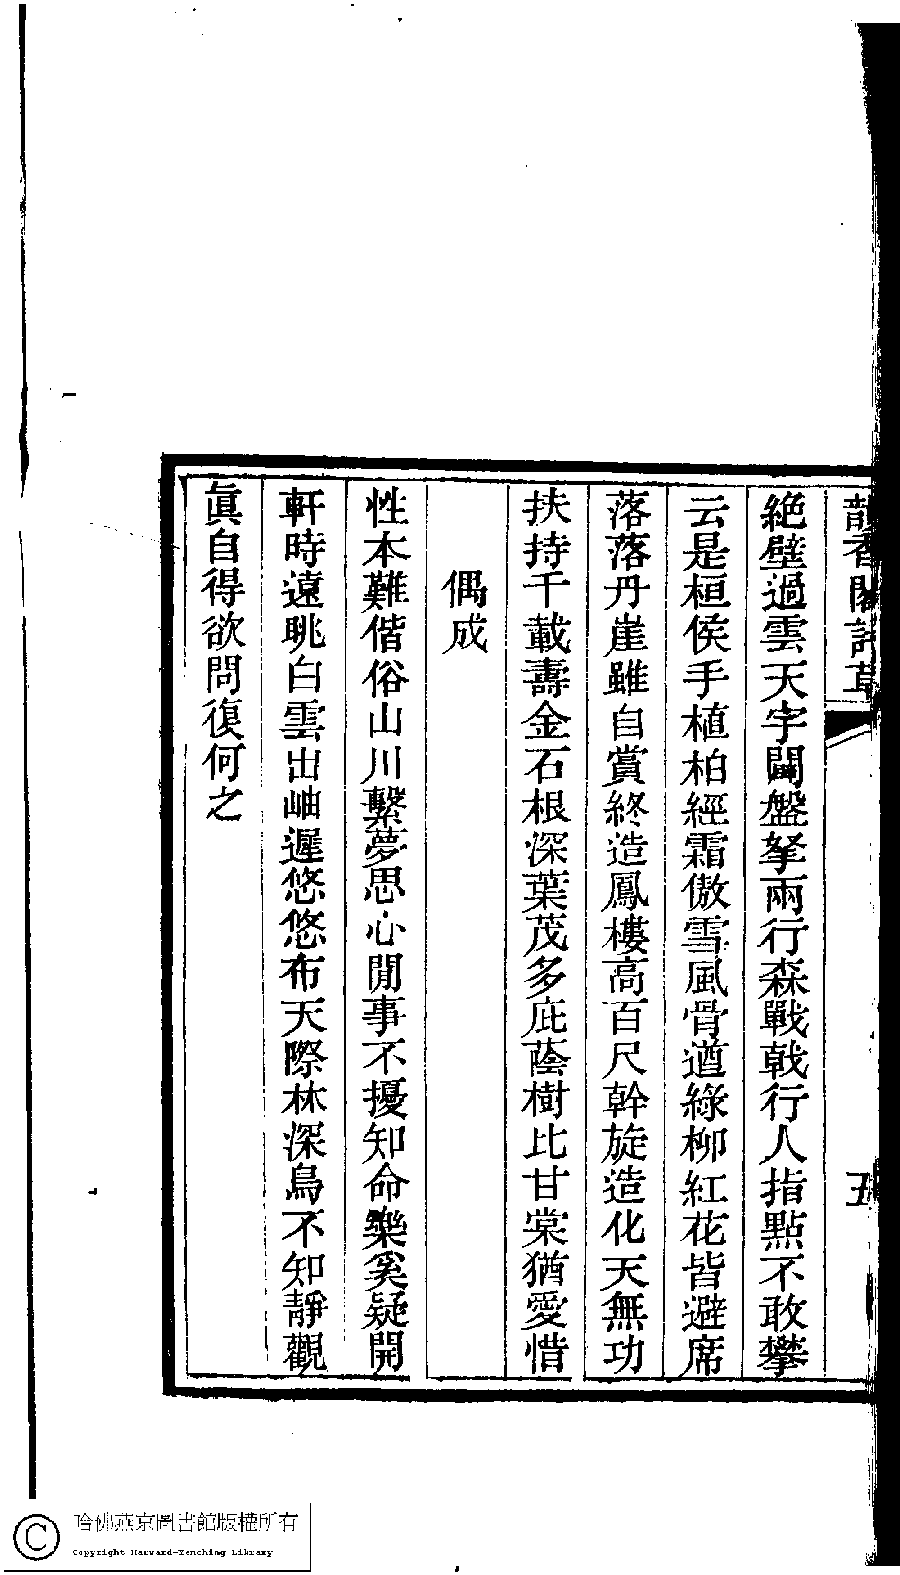 韻香閣詩草
五
絶壁過雲天宇闢盤拏兩行森戰戟行人指點不敢攀
云是桓侯手植柏經霜傲雪風骨遒綠柳紅花皆避席
落落丹崖雖自賞終造鳳樓高百尺幹旋造化天無功
扶持千載壽金石根深葉茂多庇蔭樹比甘棠猶愛惜
偶成
性本難偕俗山川繫夢思心閒事不擾知命樂奚疑開
軒時遠眺白雲出岫遲悠悠布天際林深鳥不知靜觀
眞自得欲問復何之
哈佛燕京圖書館版權所有
Copyright Harvard-Yenching Library